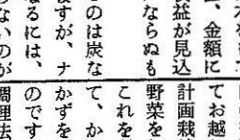 、金額に
益が見込
ならぬも
のは炭な
すが、ナ
るには、
ないのが
てお越
計画栽
野菜を
これを
て、か
かずを
のです
調理法